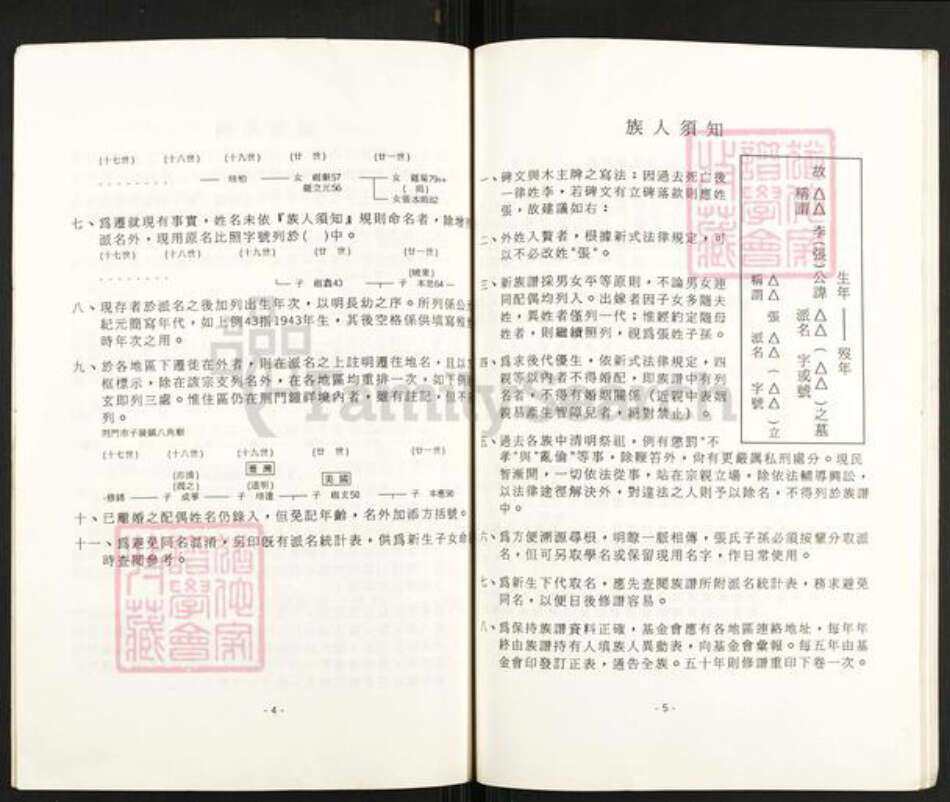 (十七世) (十八世) (十九世) (廿 世) (廿一世)
女 57
56
女
女 82
七、爲遷就現有事實，姓名未依『族人須知』規則命名者，除
派名外，現用原名比照字號列於( )中。
(十七世) (十八世) (十九世) (廿 世) (廿一世)
子 43 子 64
八、現存者於派名之後加列出生年次，以明長幼之序。所列係公
紀元簡寫年代，如上例43指1943年生，其後空格係供填寫
時年次之用。
九、於各地區下遷徙在外者，則在派名之上註明遷往地名，且以
框標示，除在該宗支列名外，在各地區均重排一次，如下例
玄即列三處。惟住區仍在荆門鍾祥境內者，雖有註記，但不
列。
荆門市子陵鎮八角廟
(十七世) (十八世) (十九世) (廿 世) (廿一世)
臺灣 美國
子 子 子 子
十、已離婚之配偶姓名仍錄入，但免記年齡，名外加添方括號。
十一、爲避免同名混淆，另印旣有派名統計表，供爲新生子女命
時查閱參考。
-4-
族人須知
一、碑文與木主牌之寫法：因過去死亡後
一律姓李，若碑文有立碑落款則應姓
張，故建議如右：
生年——歿年
故△△李(張)公諱△△(△△)之墓
稱謂 派名 字或號
△△ 張△△(△△)立
稱謂 派名 字號
二、外姓入贅者，根據新式法律規定，可
以不必改姓"張"。
三、新族譜採男女平等原則，不論男女連
同配偶均列入。出嫁者因子女多隨夫
姓，異姓者僅列一代；惟經約定隨母
姓者，則繼續照列，視爲張姓子孫。
四、爲求後代優生，依新式法律規定，四
親等以內者不得婚配，即族譜中有列
名者，不得有婚姻關係（近親中表姻
親易產生智障兒者，絕對禁止）。
五、過去各族中清明祭祖，例有懲罰"不
孝"與"亂倫"等事，除鞭笞外，尙有更嚴厲私刑處分。現民
智漸開，一切依法從事，站在宗親立場，除依法輔導興訟，
以法律途徑解決外，對違法之人則予以除名，不得列於族譜
中。
六、爲方便溯源尋根，明瞭一脈相傳，張氏子孫必須按輩分取派
名，但可另取學名或保留現用名字，作日常使用。
七、爲新生下代取名，應先查閱族譜所附派名統計表，務求避免
同名，以便日後修譜容易。
八、爲保持族譜資料正確，基金會應有各地區連絡地址，每年年
終由族譜持有人填族人異動表，向基金會彙報。每五年由基
金會印發訂正表，通告全族。五十年則修譜重印下卷一次。
-5-
FamilySearch